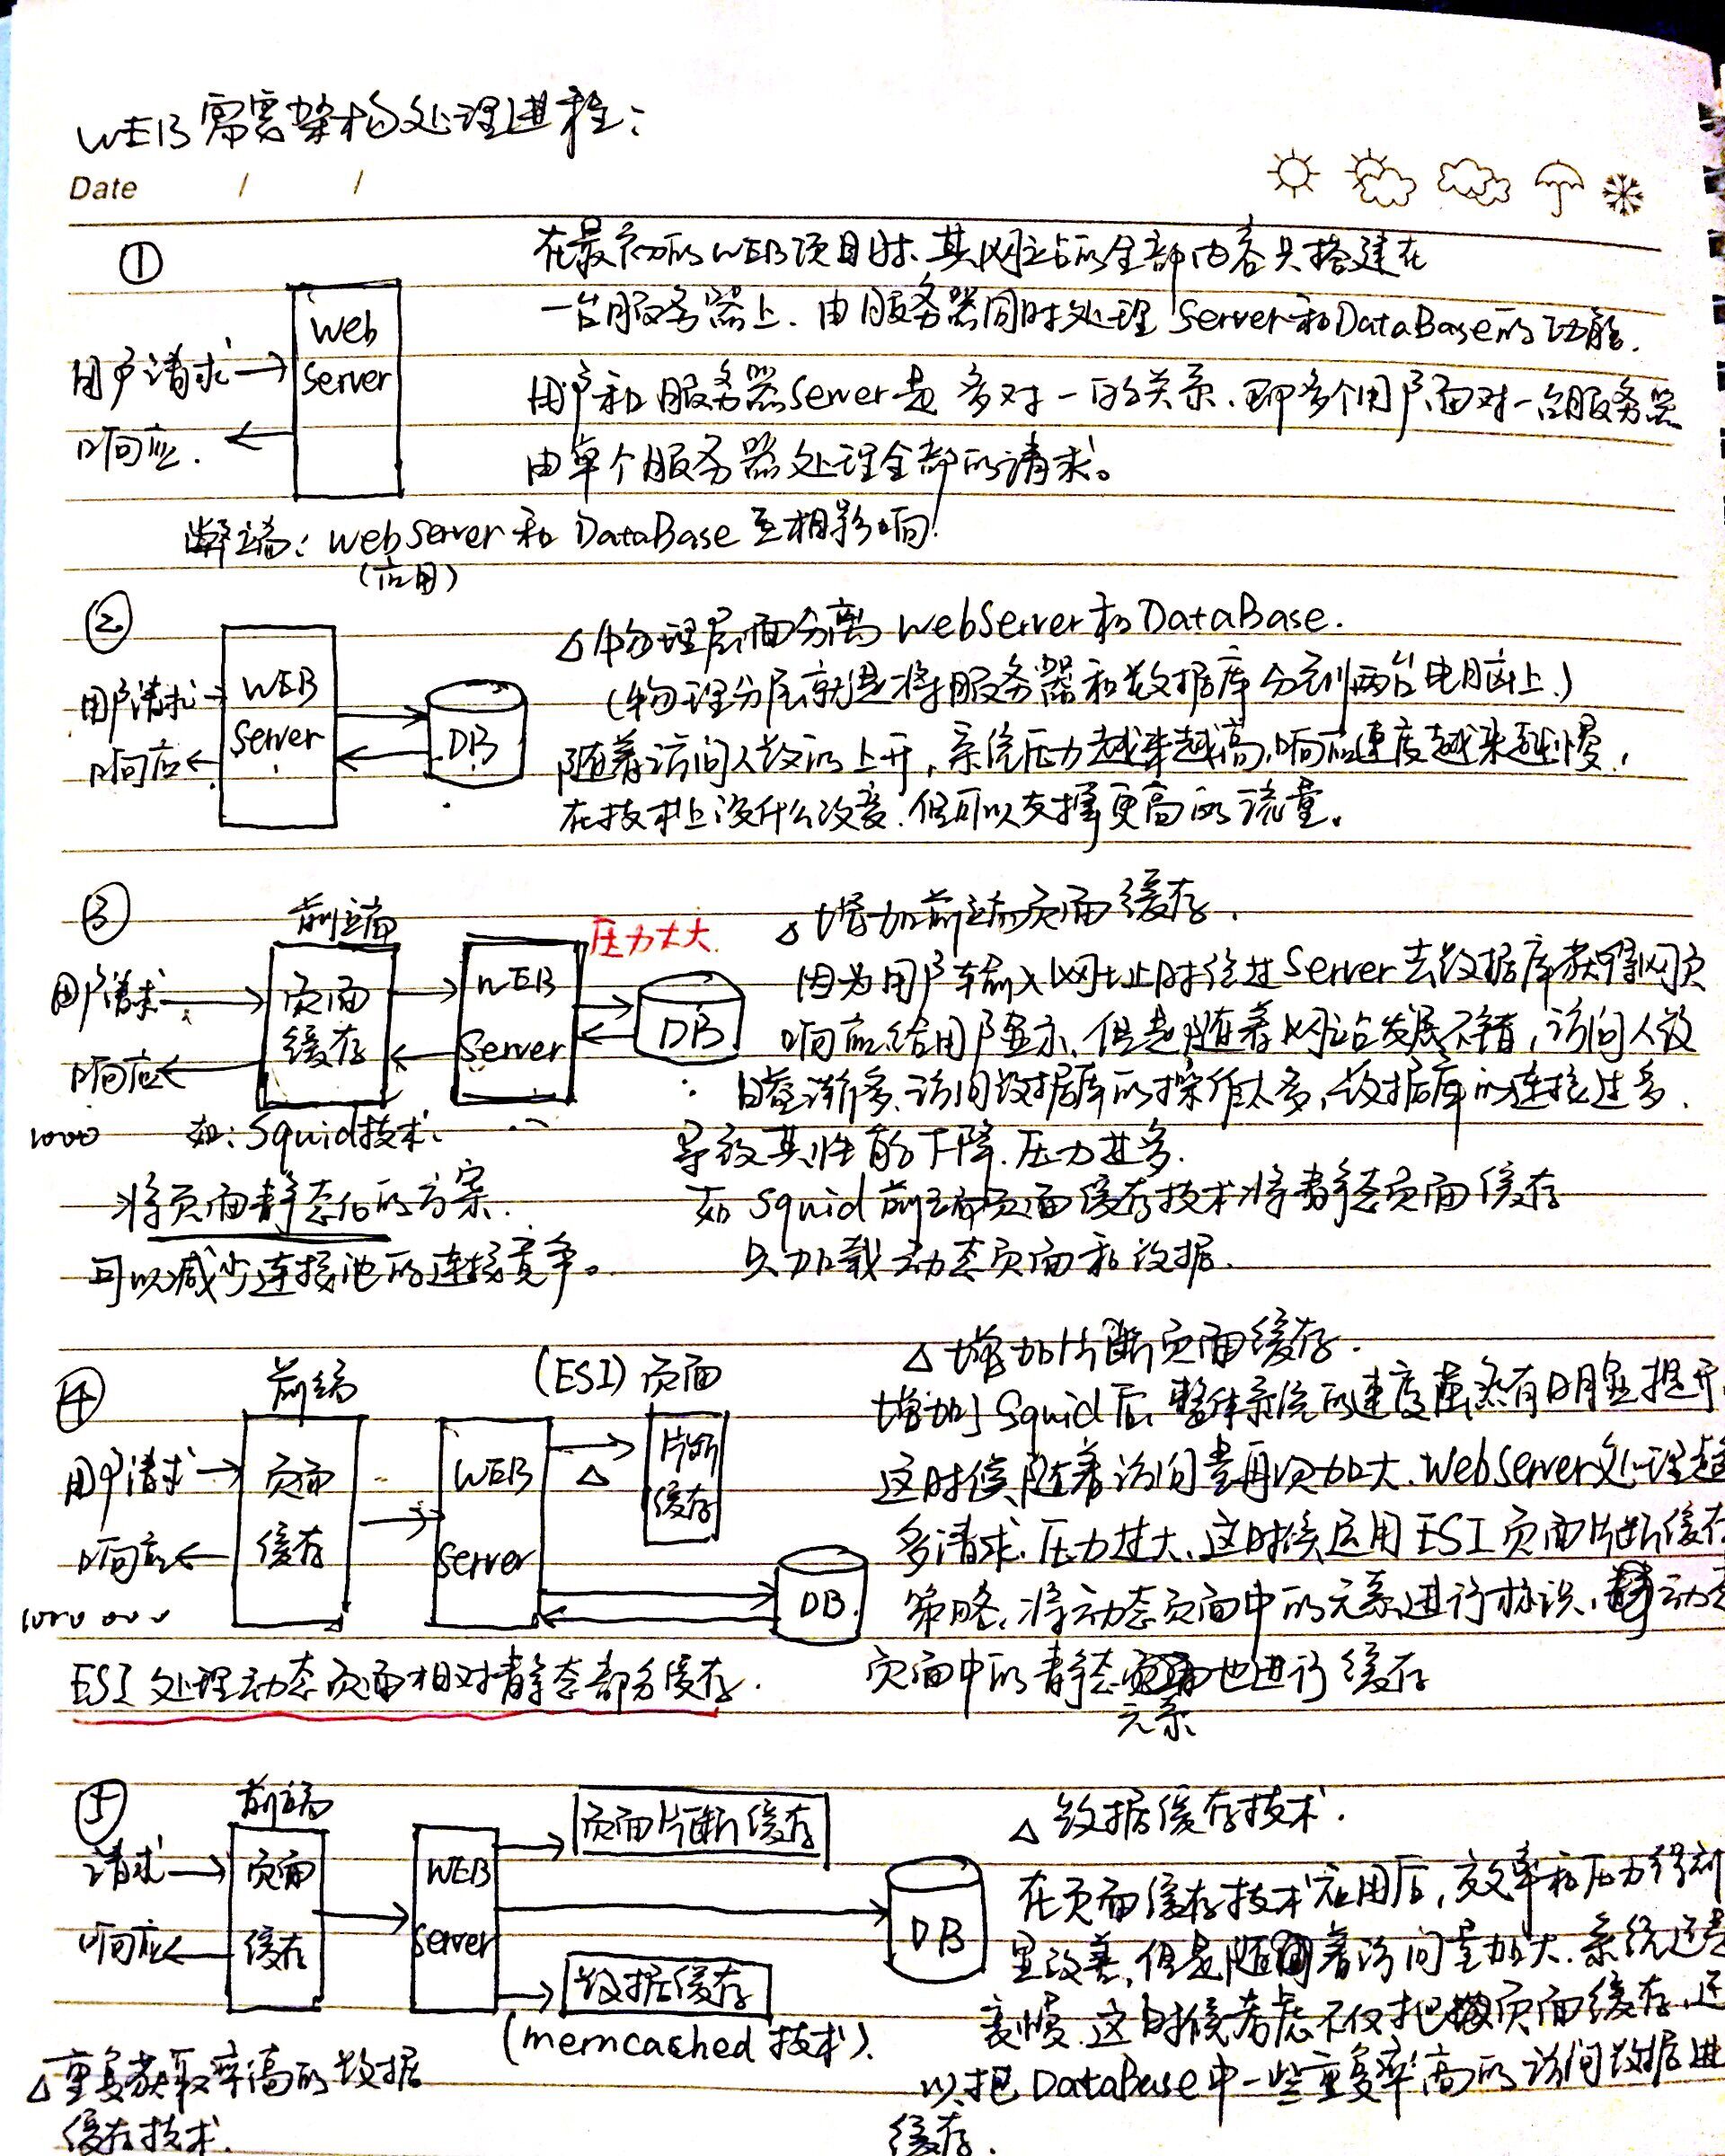 WEB需要架构处理进程：
Date / /
①
在最初的WEB项目时、其网站的全部内容只搭建在
一台服务器上. 由服务器同时处理 Server和DataBase的功能.
用户和服务器Server是 多对一的关系、即多个用户面对一台服务器
由单个服务器处理全部的请求。
用户请求
响应.
Web
Server
弊端：WebServer 和 DataBase 互相影响!
(应用)
②
△ 物理层面分离 WebServer和DataBase.
(物理分层就是将服务器和数据库分到两台电脑上.)
随着访问人数的上升，系统压力越来越高，响应速度越来越慢.
在技术上没什么改变. 但可以支撑更高的流量。
用户请求
响应
WEB
Server
DB
③
前端
压力太大.
用户请求
响应
页面
缓存
WEB
Server
DB
1000
如：Squid技术.
将页面静态化的方案.
可以减少连接池的连接竞争。
△ 增加前端页面缓存.
因为用户输入网址时经过Server去数据库获得网页
响应给用户显示、但是随着网站发展不错，访问人数
日益渐多、访问数据库的操作太多，数据库的连接过多.
导致其性能下降. 压力过多.
如 Squid 前端页面缓存技术将静态页面缓存
只加载动态页面和数据.
④
前端
(ESI) 页面
用户请求
响应
页面
缓存
WEB
Server
片断
缓存
△
DB.
ESI 处理动态页面相对静态部分缓存.
△ 增加片断页面缓存.
增加了Squid后. 整体系统的速度虽然有明显提升
这时候随着访问量再次加大. WebServer处理超
多请求. 压力过大、这时候运用ESI页面片断缓存
策略、将动态页面中的元素进行标识、动态
页面中的静态 也进行缓存
元素
⑤
前端
请求
响应
页面
缓存
WEB
Server
页面片断缓存
DB
数据缓存
(memcached 技术).
△重复获取率高的数据
缓存技术.
△ 数据缓存技术.
在页面缓存技术应用后，效率和压力得到
改善，但是随着访问量加大. 系统还是
变慢. 这时候考虑不仅把页面缓存，还
以把DataBase中一些重复率高的访问数据进
缓存.